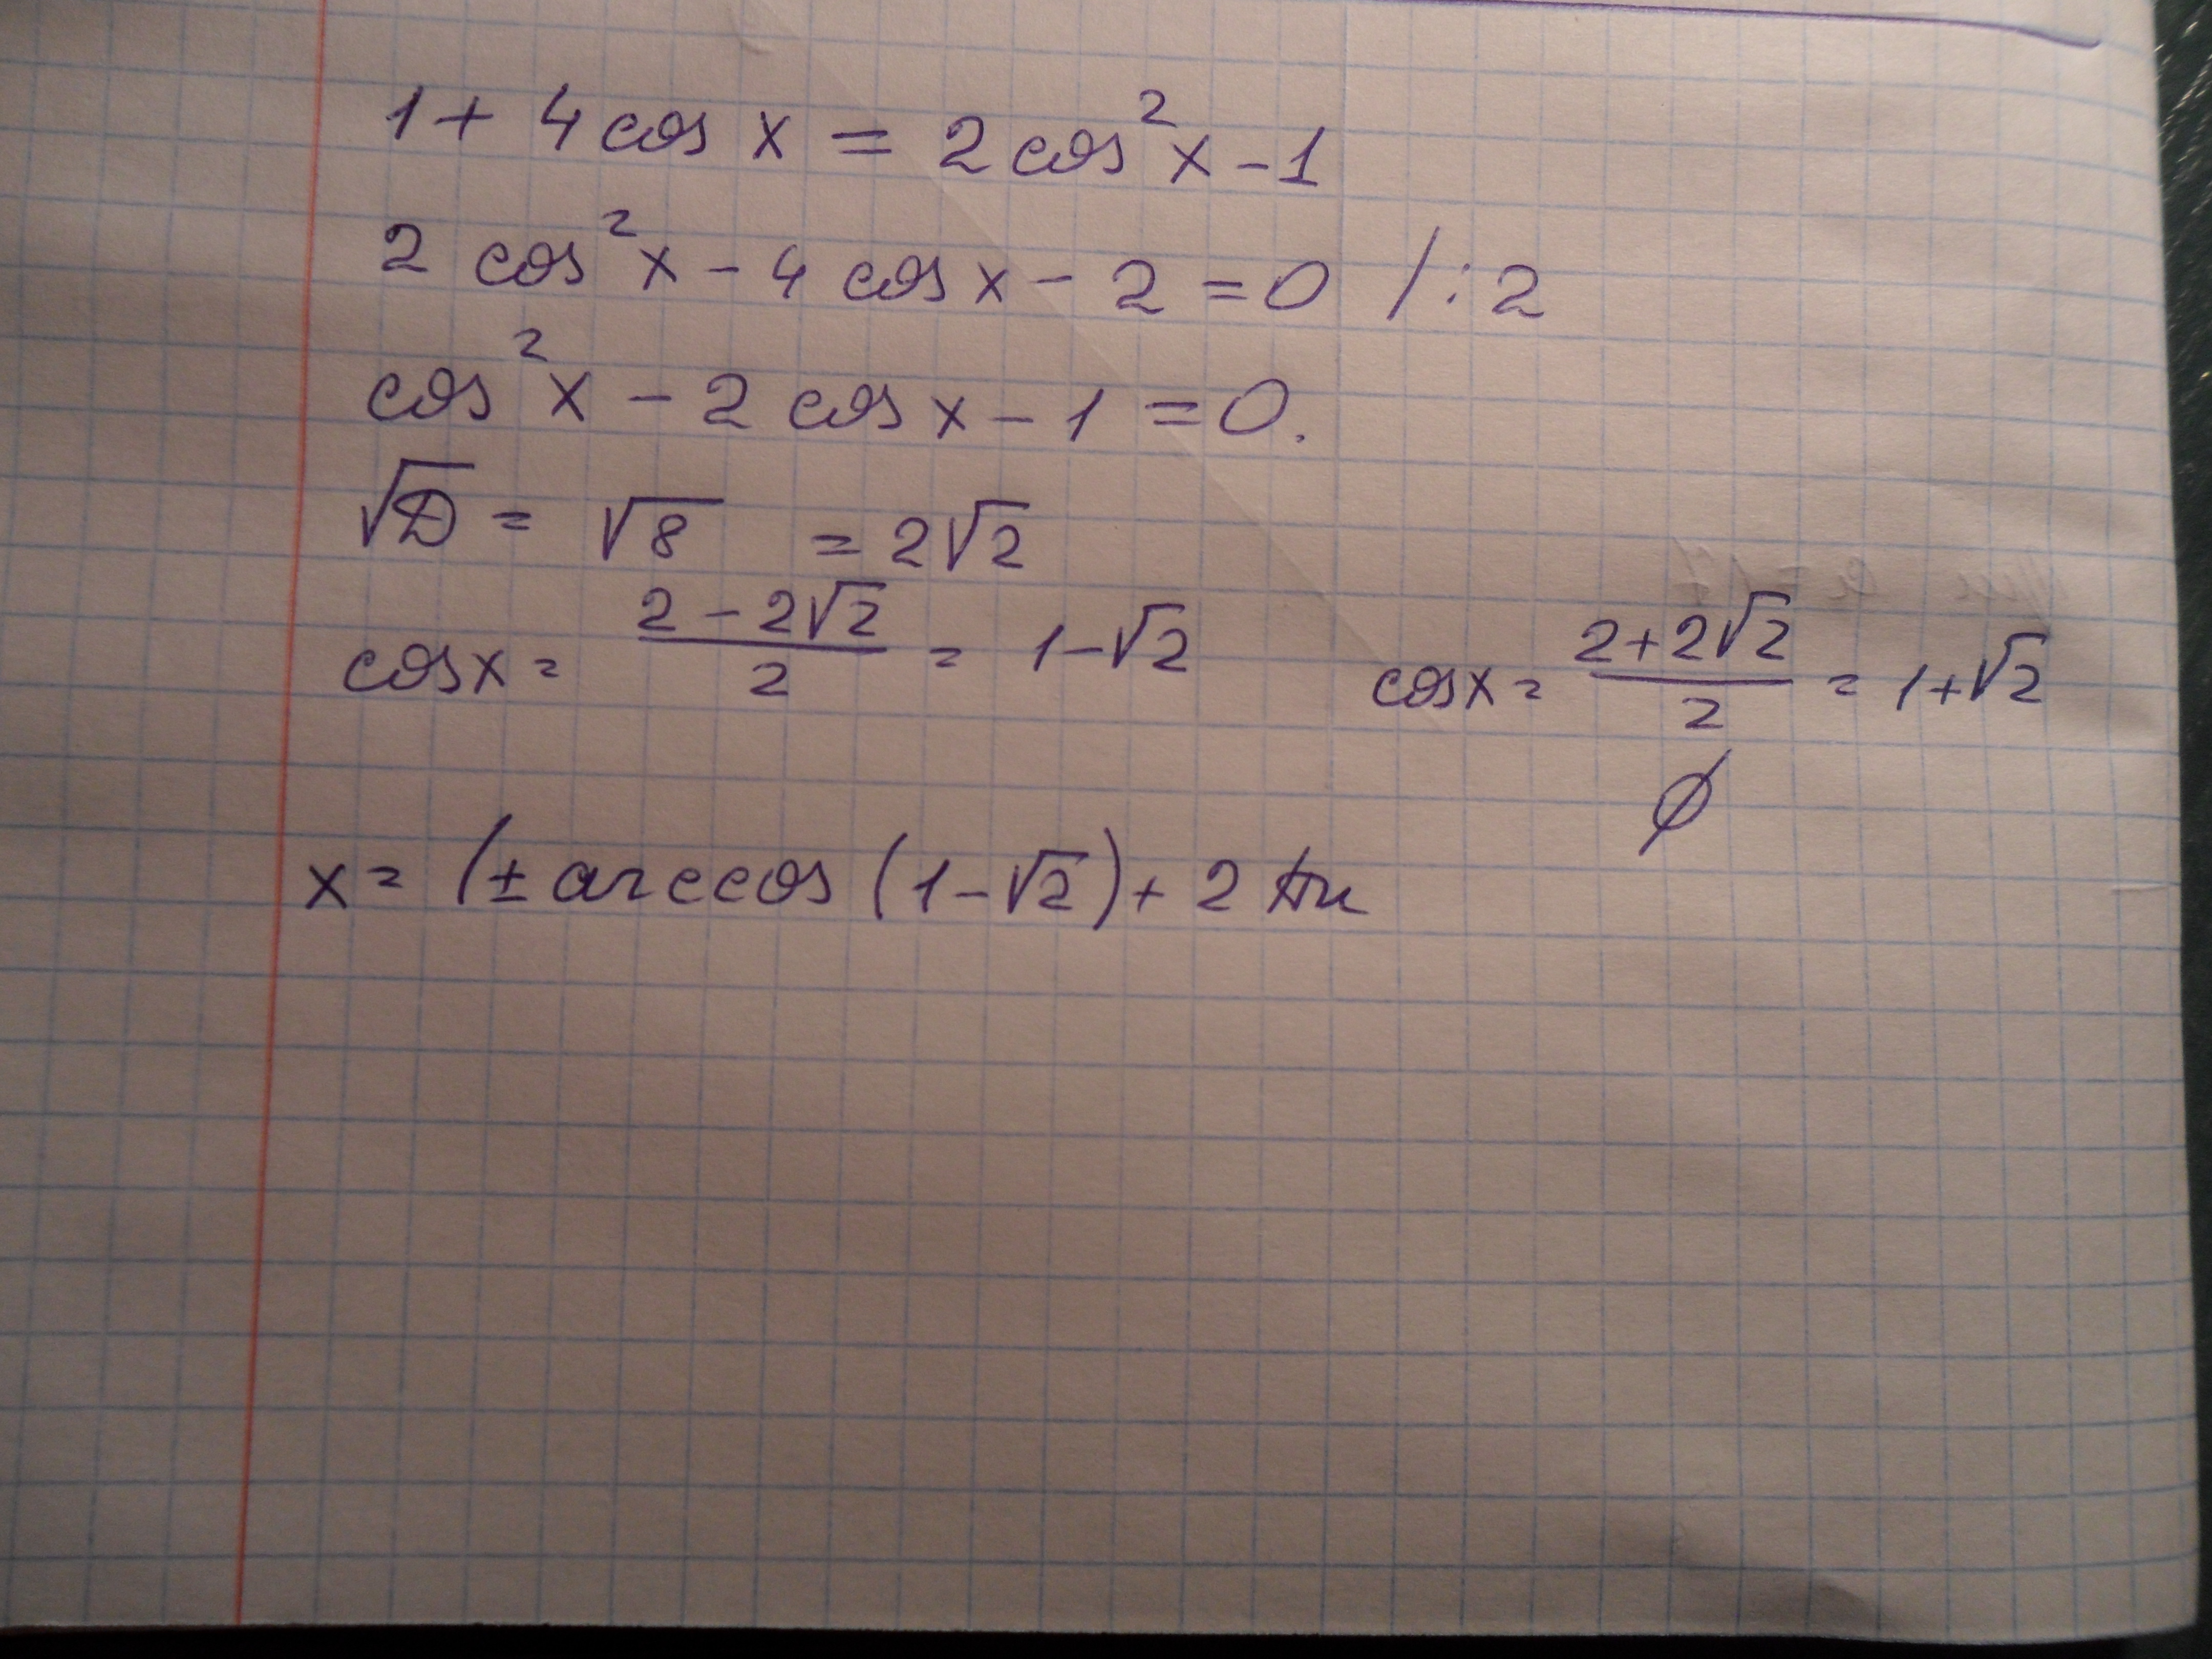 1 + 4 cos x = 2 cos² x - 1
2 cos² x - 4 cos x - 2 = 0 / : 2
cos² x - 2 cos x - 1 = 0.
√D = √8 = 2√2
cos x = (2 - 2√2)/2 = 1 - √2
cos x = (2 + 2√2)/2 = 1 + √2
∅
x = (± arccos (1 - √2) + 2πn